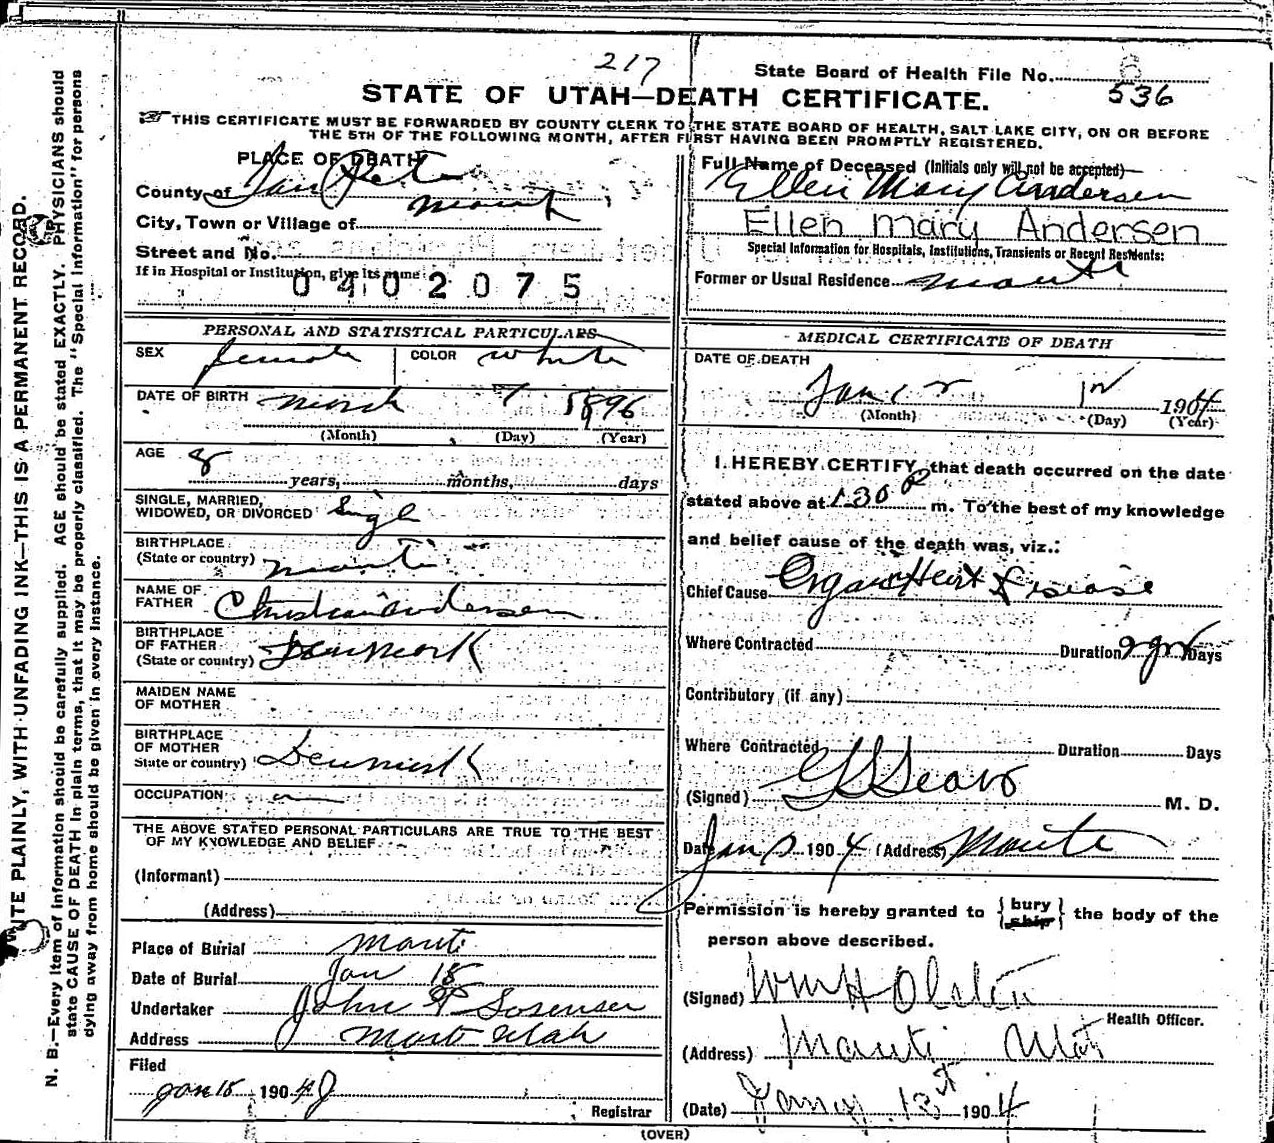 217
State Board of Health File No. 536
STATE OF UTAH—DEATH CERTIFICATE.
THIS CERTIFICATE MUST BE FORWARDED BY COUNTY CLERK TO THE STATE BOARD OF HEALTH, SALT LAKE CITY, ON OR BEFORE
THE 5TH OF THE FOLLOWING MONTH, AFTER FIRST HAVING BEEN PROMPTLY REGISTERED.
WRITE PLAINLY, WITH UNFADING INK—THIS IS A PERMANENT RECORD.
N. B.—Every item of information should be carefully supplied. AGE should be stated EXACTLY. PHYSICIANS should
state CAUSE OF DEATH in plain terms, that it may be properly classified. The "Special Information" for persons
dying away from home should be given in every instance.
PLACE OF DEATH
County of San Pete
City, Town or Village of Manti
Street and No.
If in Hospital or Institution, give its name
0402075
PERSONAL AND STATISTICAL PARTICULARS
SEX female COLOR white
DATE OF BIRTH March 7 1896
(Month) (Day) (Year)
AGE 8
years, months, days
SINGLE, MARRIED,
WIDOWED, OR DIVORCED Single
BIRTHPLACE
(State or country) Manti
NAME OF
FATHER Christian Andersen
BIRTHPLACE
OF FATHER
(State or country) Denmark
MAIDEN NAME
OF MOTHER
BIRTHPLACE
OF MOTHER
State or country) Denmark
OCCUPATION
THE ABOVE STATED PERSONAL PARTICULARS ARE TRUE TO THE BEST
OF MY KNOWLEDGE AND BELIEF
(Informant)
(Address)
Place of Burial Manti
Date of Burial Jan 15
Undertaker John P Sorensen
Address Manti Utah
Filed
Jan 15 1904
Registrar
Full Name of Deceased (Initials only will not be accepted)
Ellen Mary Andersen
Ellen Mary Andersen
Special Information for Hospitals, Institutions, Transients or Recent Residents:
Former or Usual Residence Manti
MEDICAL CERTIFICATE OF DEATH
DATE OF DEATH
Jan 1904
(Month) (Day) (Year)
I HEREBY CERTIFY, that death occurred on the date
stated above at 1.30 P m. To the best of my knowledge
and belief cause of the death was, viz.:
Chief Cause Organic Heart Disease
Where Contracted Duration Days
Contributory (if any)
Where Contracted Duration Days
(Signed) G L Sears M. D.
Date Jan 1904 (Address) Manti
Permission is hereby granted to {bury ship} the body of the
person above described.
(Signed) Wm H Olsten
Health Officer.
(Address) Manti Utah
(Date) 1904
(OVER)